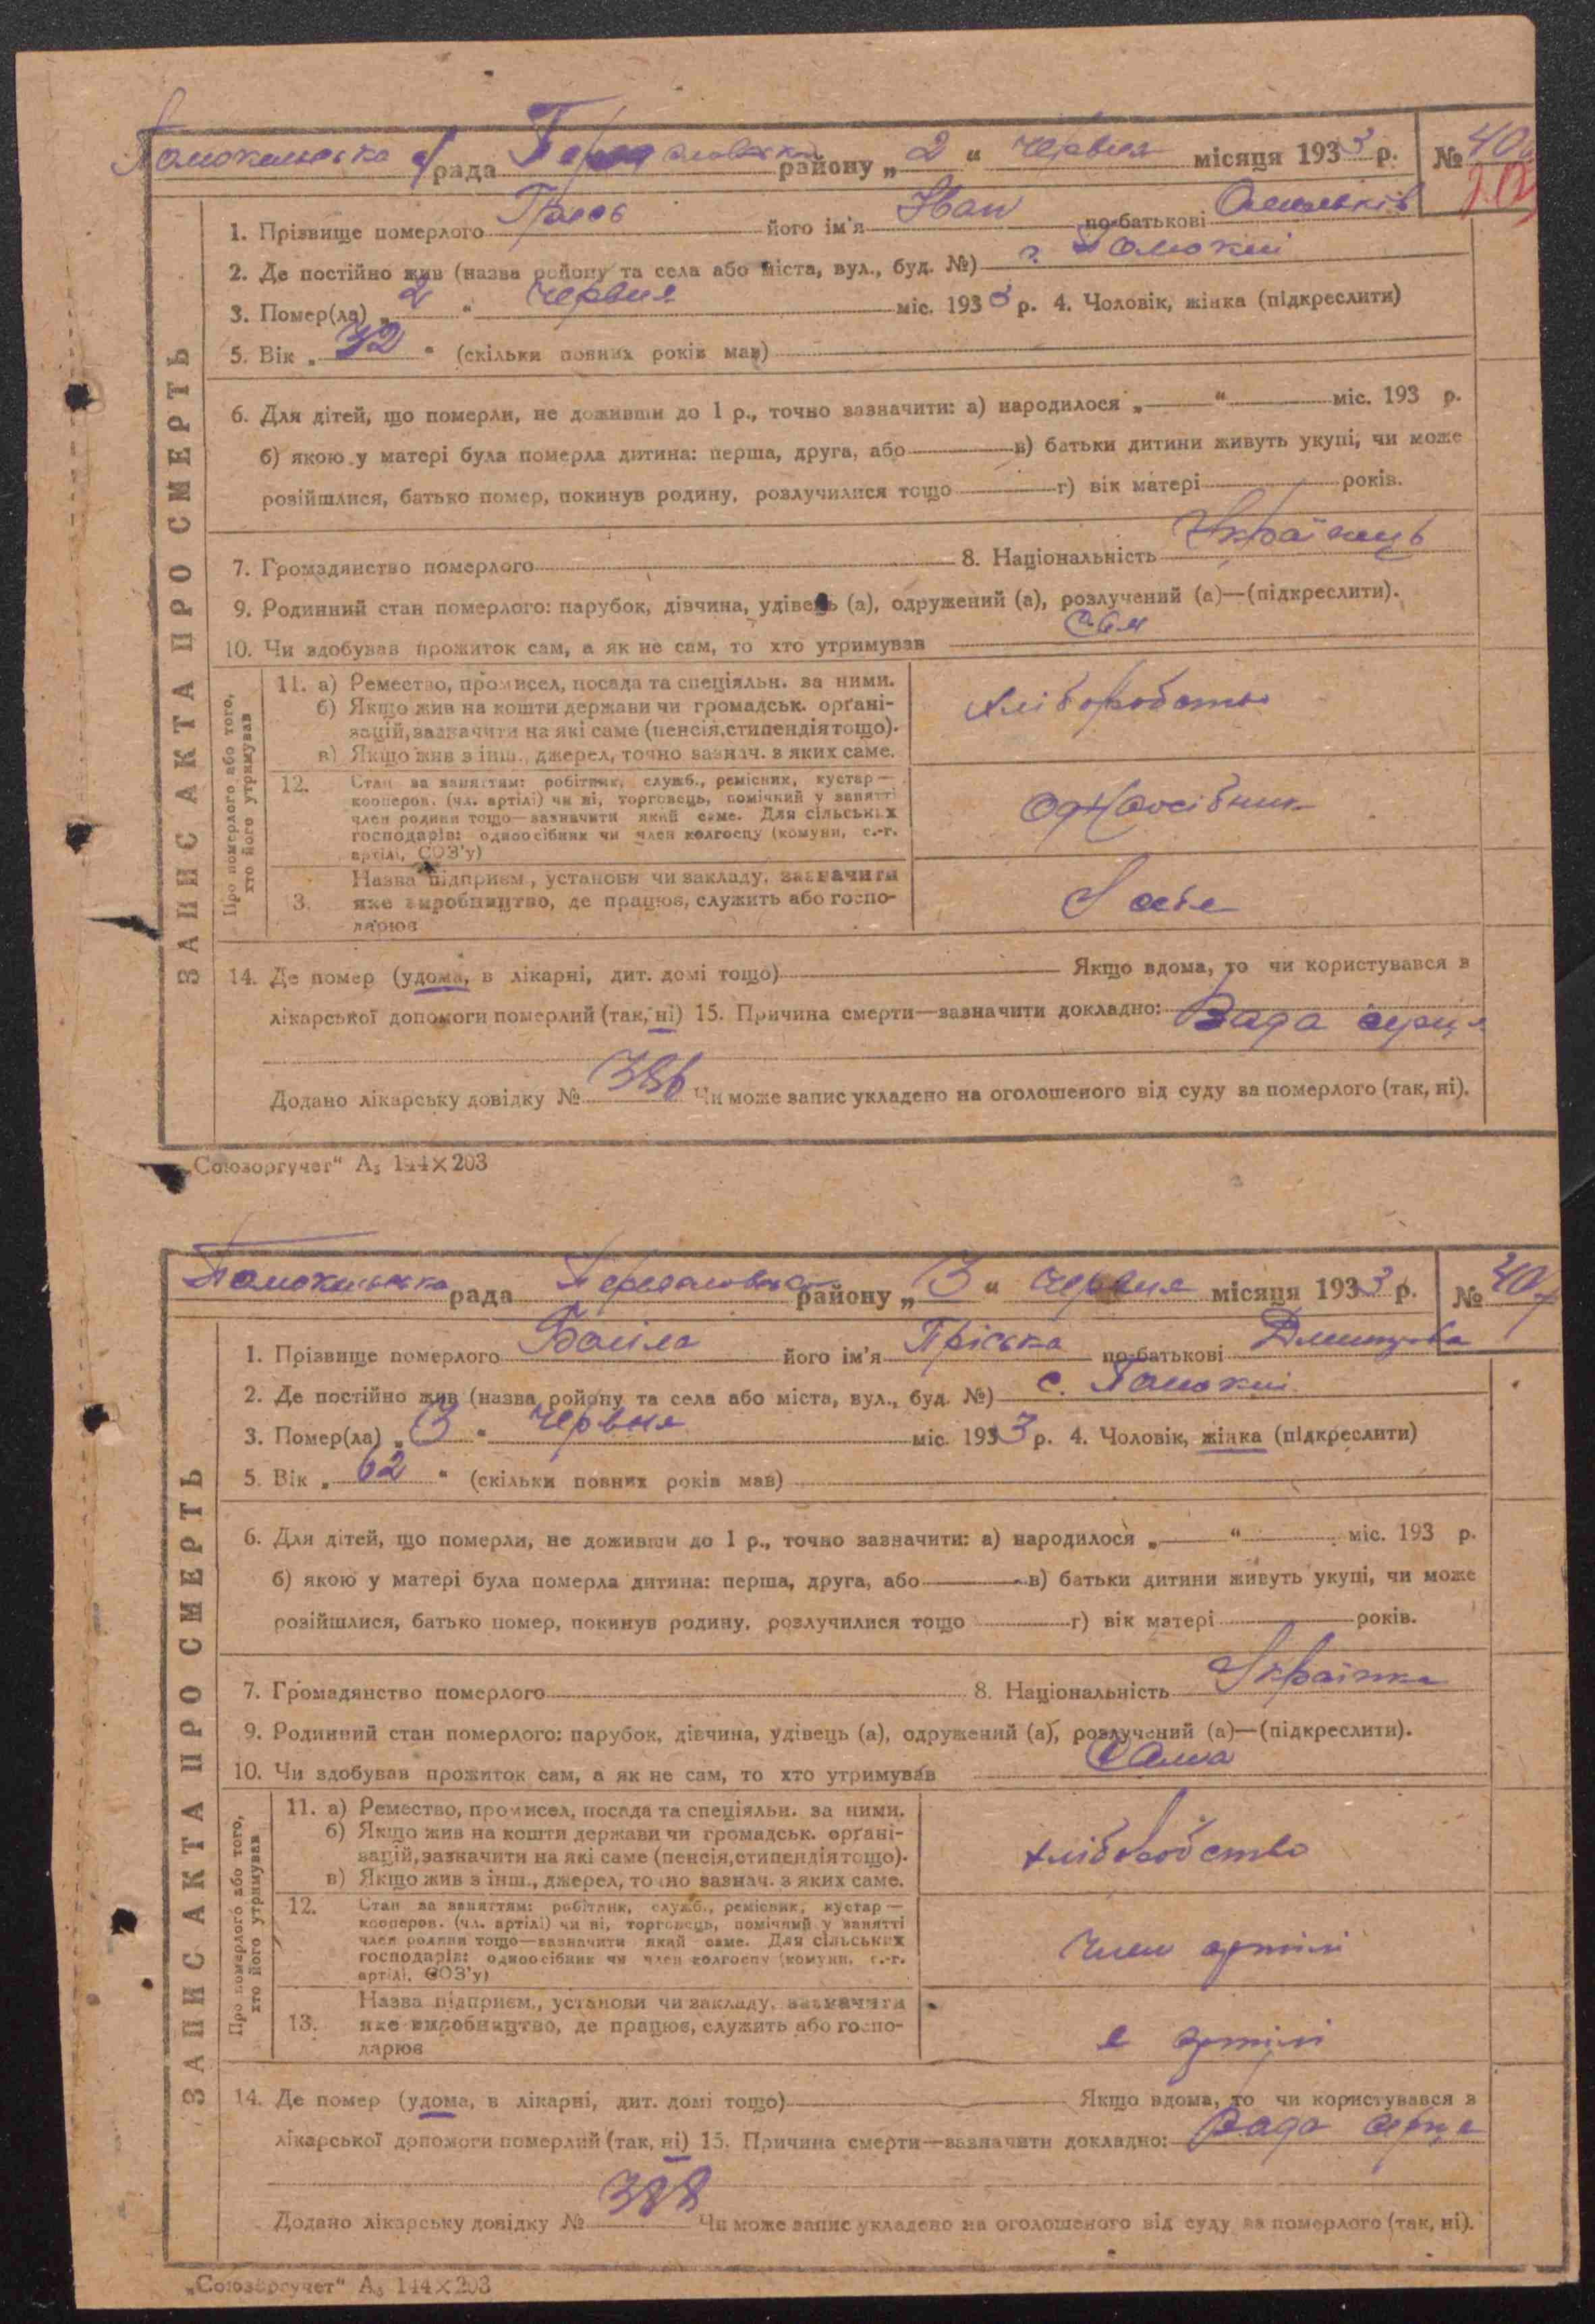 рада района „ 2 “ червня місяця 1933 р. №
1. Прізвище померлого його ім'я Іван по-батькові
2. Де постійно жив (назва ройону та села або міста, вул., буд. №)
3. Помер(ла) „ 2 “ червня міс. 1933 р. 4. Чоловік, жінка (підкреслити)
5. Вік „ 32 “ (скільки повних років мав)
6. Для дітей, що померли, не доживши до 1 р., точно зазначити: а) народилося „ “ міс. 193 р.
б) якою у матері була померла дитина: перша, друга, або в) батьки дитини живуть укупі, чи може
розійшлися, батько помер, покинув родину, розлучилися тощо г) вік матері років.
7. Громадянство померлого 8. Національність Українець
9. Родинний стан померлого: парубок, дівчина, удівець (а), одружений (а), розлучений (а)—(підкреслити).
10. Чи здобував прожиток сам, а як не сам, то хто утримував Сам
ЗАПИС АКТА ПРО СМЕРТЬ
Про померлого або того, хто його утримував
11. а) Ремество, промисел, посада та спеціяльн. за ними.
б) Якщо жив на кошти держави чи громадськ. орґані-
зацій, зазначити на які саме (пенсія, стипендія тощо).
в) Якщо жив з інш., джерел, точно зазнач. з яких саме.
12. Стан за заняттям: робітник, служб., ремісник, кустар—
кооперов. (чл. артілі) чи ні, торговець, помічний у занятті
член родини тощо—зазначити який саме. Для сільських
господарів: одноосібник чи член колгоспу (комуни, с.-г.
артілі, СОЗ'у)
одноосібник
Назва підприєм., установи чи закладу, зазначити
3. яке виробництво, де працює, служить або госпо-
дарює
14. Де помер (удома, в лікарні, дит. домі тощо) Якщо вдома, то чи користувався з
лікарської допомоги померлий (так, ні) 15. Причина смерти—зазначити докладно: Вада серця
Додано лікарську довідку № 386 Чи може запис укладено на оголошеного від суду за померлого (так, ні).
„Союзоргучет“ А₅ 144×203
рада району „ 3 “ червня місяця 1933 р. № 407
1. Прізвище померлого його ім'я Пріська по-батькові
2. Де постійно жив (назва ройону та села або міста, вул., буд. №) с.
3. Помер(ла) „ 3 “ червня міс. 1933 р. 4. Чоловік, жінка (підкреслити)
5. Вік „ 62 “ (скільки повних років мав)
6. Для дітей, що померли, не доживши до 1 р., точно зазначити: а) народилося „ “ міс. 193 р.
б) якою у матері була померла дитина: перша, друга, або в) батьки дитини живуть укупі, чи може
розійшлися, батько помер, покинув родину, розлучилися тощо г) вік матері років.
7. Громадянство померлого 8. Національність Українка
9. Родинний стан померлого: парубок, дівчина, удівець (а), одружений (а), розлучений (а)—(підкреслити).
10. Чи здобував прожиток сам, а як не сам, то хто утримував Сама
ЗАПИС АКТА ПРО СМЕРТЬ
Про померлого або того, хто його утримував
11. а) Ремество, промисел, посада та спеціяльн. за ними.
б) Якщо жив на кошти держави чи громадськ. орґані-
зацій, зазначити на які саме (пенсія, стипендія тощо).
в) Якщо жив з інш., джерел, точно зазнач. з яких саме.
хліборобство
12. Стан за заняттям: робітник, служб., ремісник, кустар—
кооперов. (чл. артілі) чи ні, торговець, помічний у занятті
член родини тощо—зазначити який саме. Для сільських
господарів: одноосібник чи член колгоспу (комуни, с.-г.
артілі, СОЗ'у)
член артілі
Назва підприєм., установи чи закладу, зазначити
13. яке виробництво, де працює, служить або госпо-
дарює
в артілі
14. Де помер (удома, в лікарні, дит. домі тощо) Якщо вдома, то чи користувався з
лікарської допомоги померлий (так, ні) 15. Причина смерти—зазначити докладно: Вада серця
Додано лікарську довідку № 388 Чи може запис укладено на оголошеного від суду за померлого (так, ні).
„Союзоргучет“ А₅ 144×203